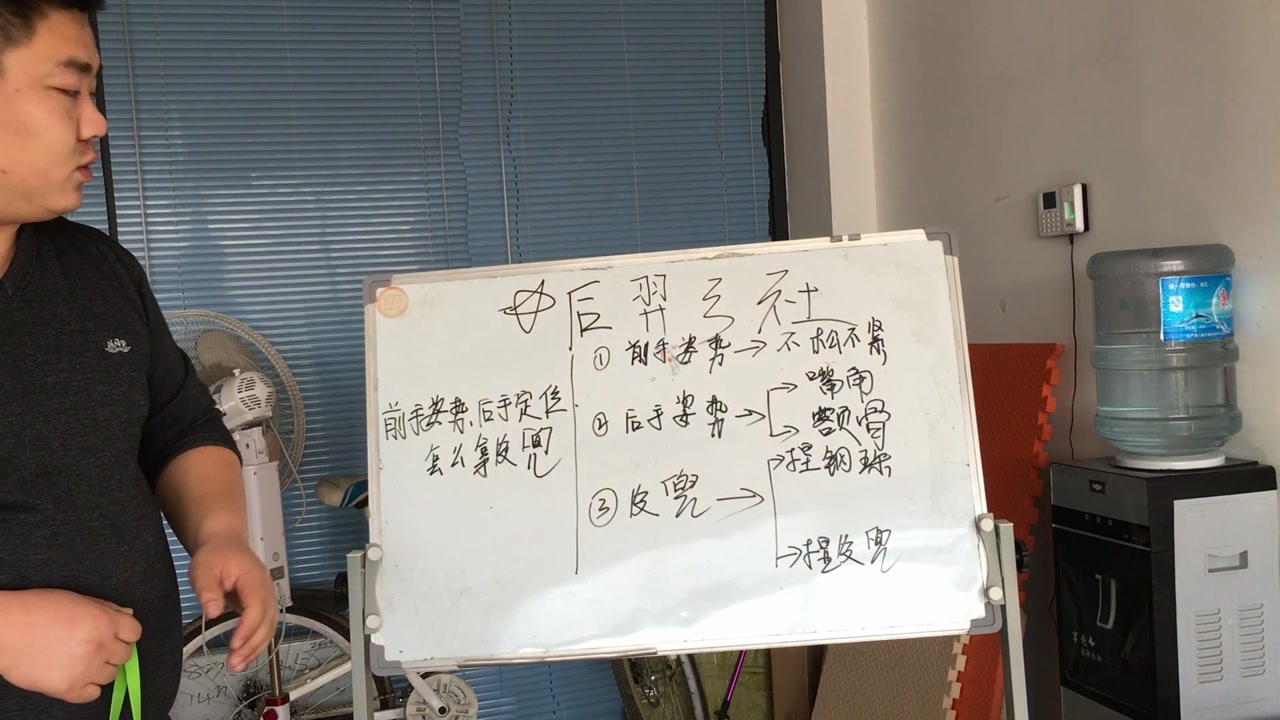 后羿弓社
① 前手姿势 → 不松不紧
② 后手姿势 → 嘴角
额骨
③ 皮兜 → 捏钢珠
捏皮兜
前手姿势、后手定位
怎么拿皮兜